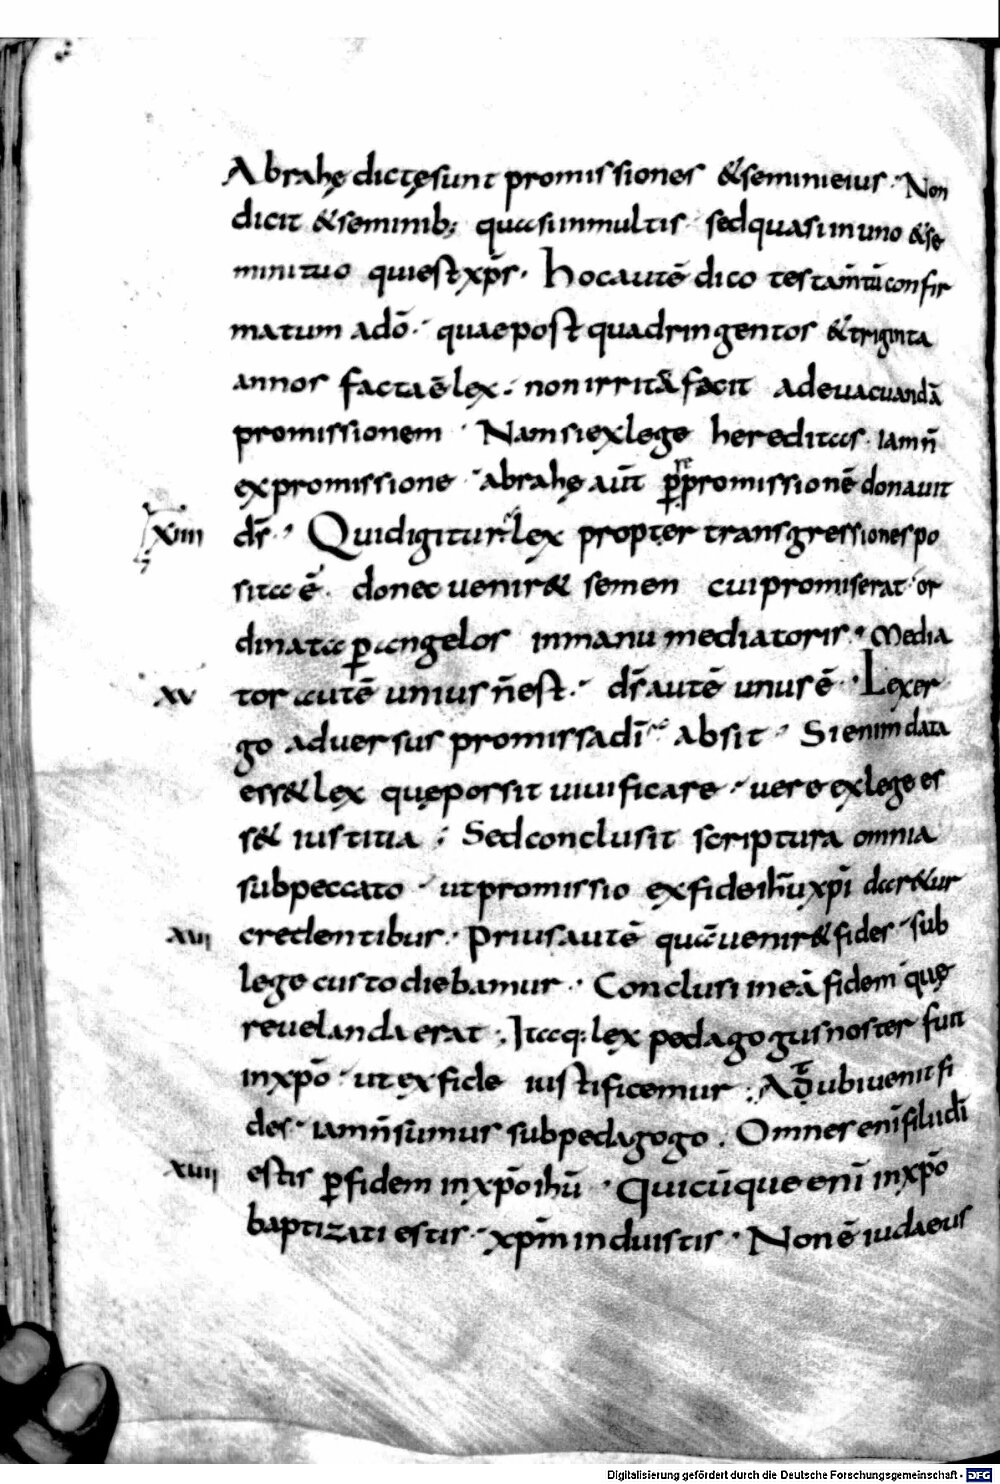 Abrahę dictę sunt promissiones & semini eius · Non
dicit & seminib; quasi in multis · sed quasi in uno & se
mini tuo qui est xp̄s · Hoc autē dico testam̄tū confir
matum a dō · quae post quadringentos & triginta
annos facta ē lex · non irritā facit ad euacuandā
promissionem · Nam si ex lege hereditas · iam n̄
ex promissione · abrahę aūt per promissionē donauit
XIIII
d̄s · Quid igitur lex propter transgressiones po
sita ē · donec uenir& semen cui promiserat · or
dinata p̄ angelos in manu mediatoris · Media
XV
tor autē unius n̄ est · d̄s autē unus ē · Lex er
go aduersus promissa dī absit · Si enim data
ess& lex quę possit uiuificare · uere ex lege es
s& iustitia ; Sed conclusit scriptura omnia
sub peccato · ut promissio ex fide ih̄u xp̄i dar&ur
XVI
credentibus · Prius autē quā uenir& fides · sub
lege custodiebamur · Conclusi in eā fidem quę
reuelanda erat ; Itaq; lex pedagogus noster fuit
in xp̄o · ut ex fide iustificemur ; At ubi uenit fi
des · iam n̄ sumus sub pedagogo . Omnes enī filii dī
XVII
estis p̄ fidem in xp̄o ih̄u · Quicūque enī in xp̄o
baptizati estis · xp̄m induistis · Non ē iudaeus
Digitalisierung gefördert durch die Deutsche Forschungsgemeinschaft - DFG